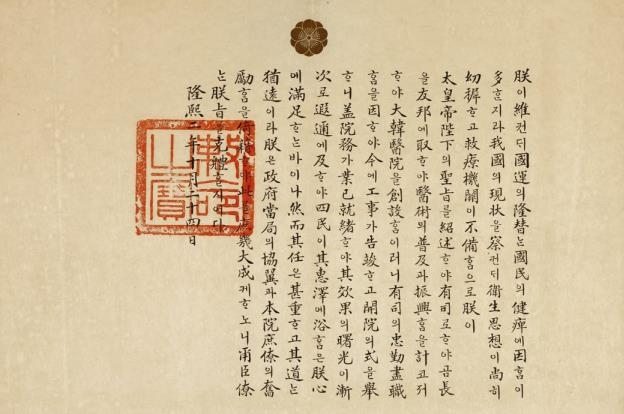 朕이維컨ᄃᆡ國運의隆替ᄂᆞᆫ國民의健瘁에因ᄒᆞᆷ이
多ᄒᆞᆫ지라我國의現狀을察컨ᄃᆡ衛生思想이尙히
幼穉ᄒᆞ고救療機關이不備ᄒᆞᆷ으로朕이
太皇帝陛下의聖旨를紹述ᄒᆞ야有司로ᄒᆞ야곰長
을友邦에取ᄒᆞ야醫術의普及과振興ᄒᆞᆷ을計코저
ᄒᆞ야大韓醫院을創設ᄒᆞᆷ이러니有司의忠勤盡職
ᄒᆞᆷ을因ᄒᆞ야今에工事가告竣ᄒᆞ고開院의式을擧
ᄒᆞ니盖院務가業已就緖ᄒᆞ야其效果의曙光이漸
次로遐邇에及ᄒᆞ야四民이其惠澤에浴ᄒᆞᆷ은朕心
에滿足ᄒᆞᄂᆞᆫ바이나然而其任은甚重ᄒᆞ고其道ᄂᆞᆫ
猶遠이라朕은政府當局의協翼과本院庶僚의奮
勵ᄒᆞᆷ을倚賴ᄒᆞ야此를庶幾大成케ᄒᆞ노니爾臣僚
ᄂᆞᆫ朕旨를克體ᄒᆞᆯ지어다
隆熙二年十月二十四日
勅命之寶